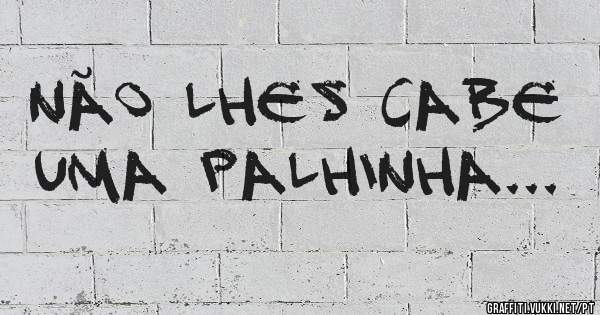 NÃO LHES CABE
UMA PALHINHA...
GRAFFITI.VUKKI.NET/PT